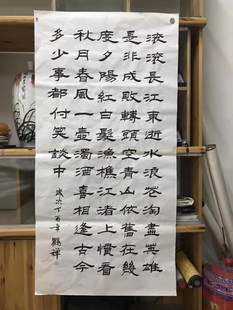 滚滚長江東逝水浪花淘盡英雄
是非成敗轉頭空青山依舊在幾
度夕陽紅白髮漁樵江渚上慣看
秋月春風一壺濁酒喜相逢古今
多少事都付笑談中
歲次丁酉年